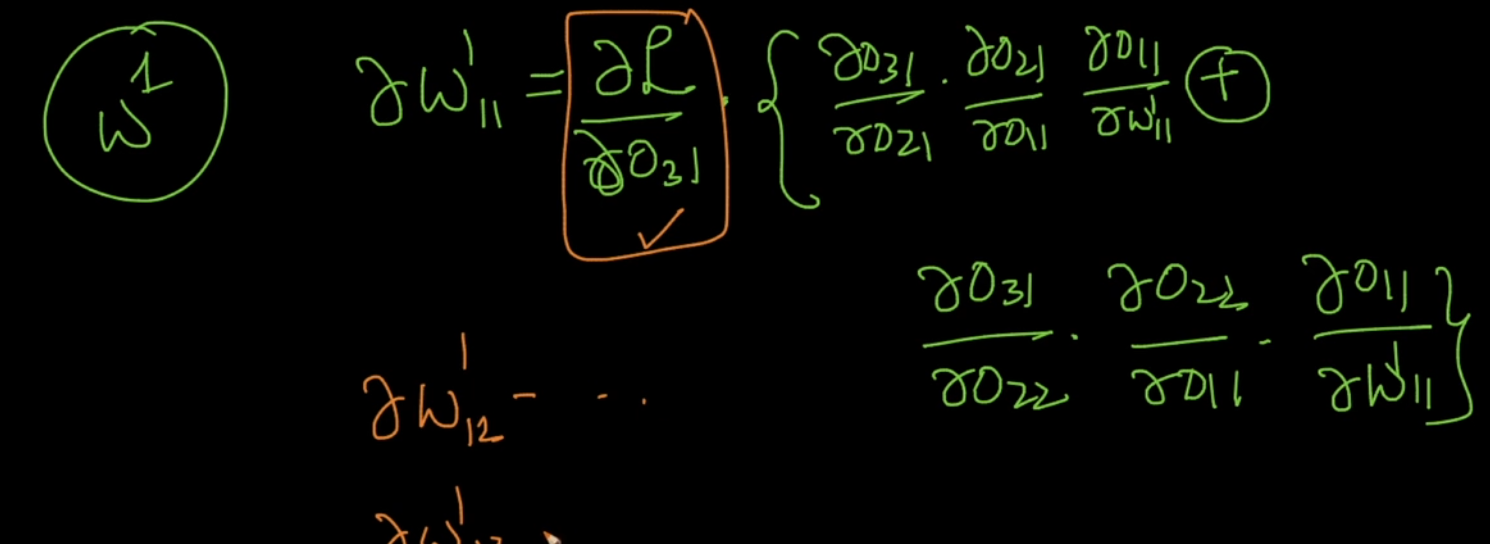 w¹ ∂w¹₁₁ = ∂L/∂O₃₁ · { ∂O₃₁/∂O₂₁ · ∂O₂₁/∂O₁₁ ∂O₁₁/∂w¹₁₁ +
∂O₃₁/∂O₂₂ · ∂O₂₂/∂O₁₁ · ∂O₁₁/∂w¹₁₁ }
∂w¹₁₂ - - ..